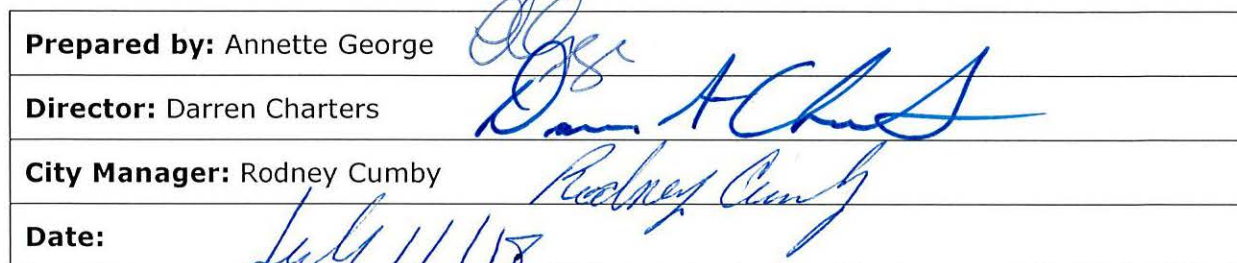 Prepared by: Annette George
Director: Darren Charters Darren A Charters
City Manager: Rodney Cumby Rodney Cumby
Date: July 11/18